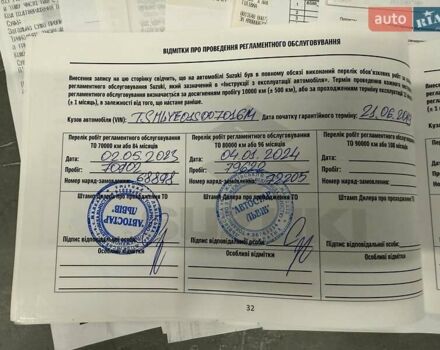 auto RIA
ВІДМІТКИ ПРО ПРОВЕДЕННЯ РЕГЛАМЕНТНОГО ОБСЛУГОВУВАННЯ
Внесення запису на цю сторінку свідчить, що на автомобілі Suzuki був в повному обсязі виконаний перелік обов'язкових робіт
регламентного обслуговування Suzuki, який зазначений в «Інструкції з експлуатації автомобіля». Термін проведення кожного
регламентного обслуговування визначається за досягненням пробігу 10000 км (± 500 км), або за проходженням терміну експлуатації
(± 1 місяць), в залежності від того, що настане раніше.
Кузов автомобіля (VIN): Дата початку гарантійного терміну: 21.06.
Перелік робіт регламентного обслуговування ТО 70000 км або 84 місяці
Дата: 02.05.2023
Пробіг: 70902
Номер наряд-замовлення: 68898
Штамп Дилера про проходження ТО
АВТОСТАР
ЛЬВІВ
Підпис відповідальної особи:
Особливі відмітки
Перелік робіт регламентного обслуговування ТО 80000 км або 96 місяців
Дата: 04.01.2024
Пробіг:
Номер наряд-замовлення: 79205
Штамп Дилера про проходження ТО
АВТОСТАР
ЛЬВІВ
Підпис відповідальної особи:
Особливі відмітки
Перелік робіт регламентного обслуговування
ТО 90000 км або 108 місяців
Дата:
Пробіг:
Номер наряд-замовлення:
Штамп Дилера про проходження ТО
Підпис відповідальної особи:
Особливі відмітки
32